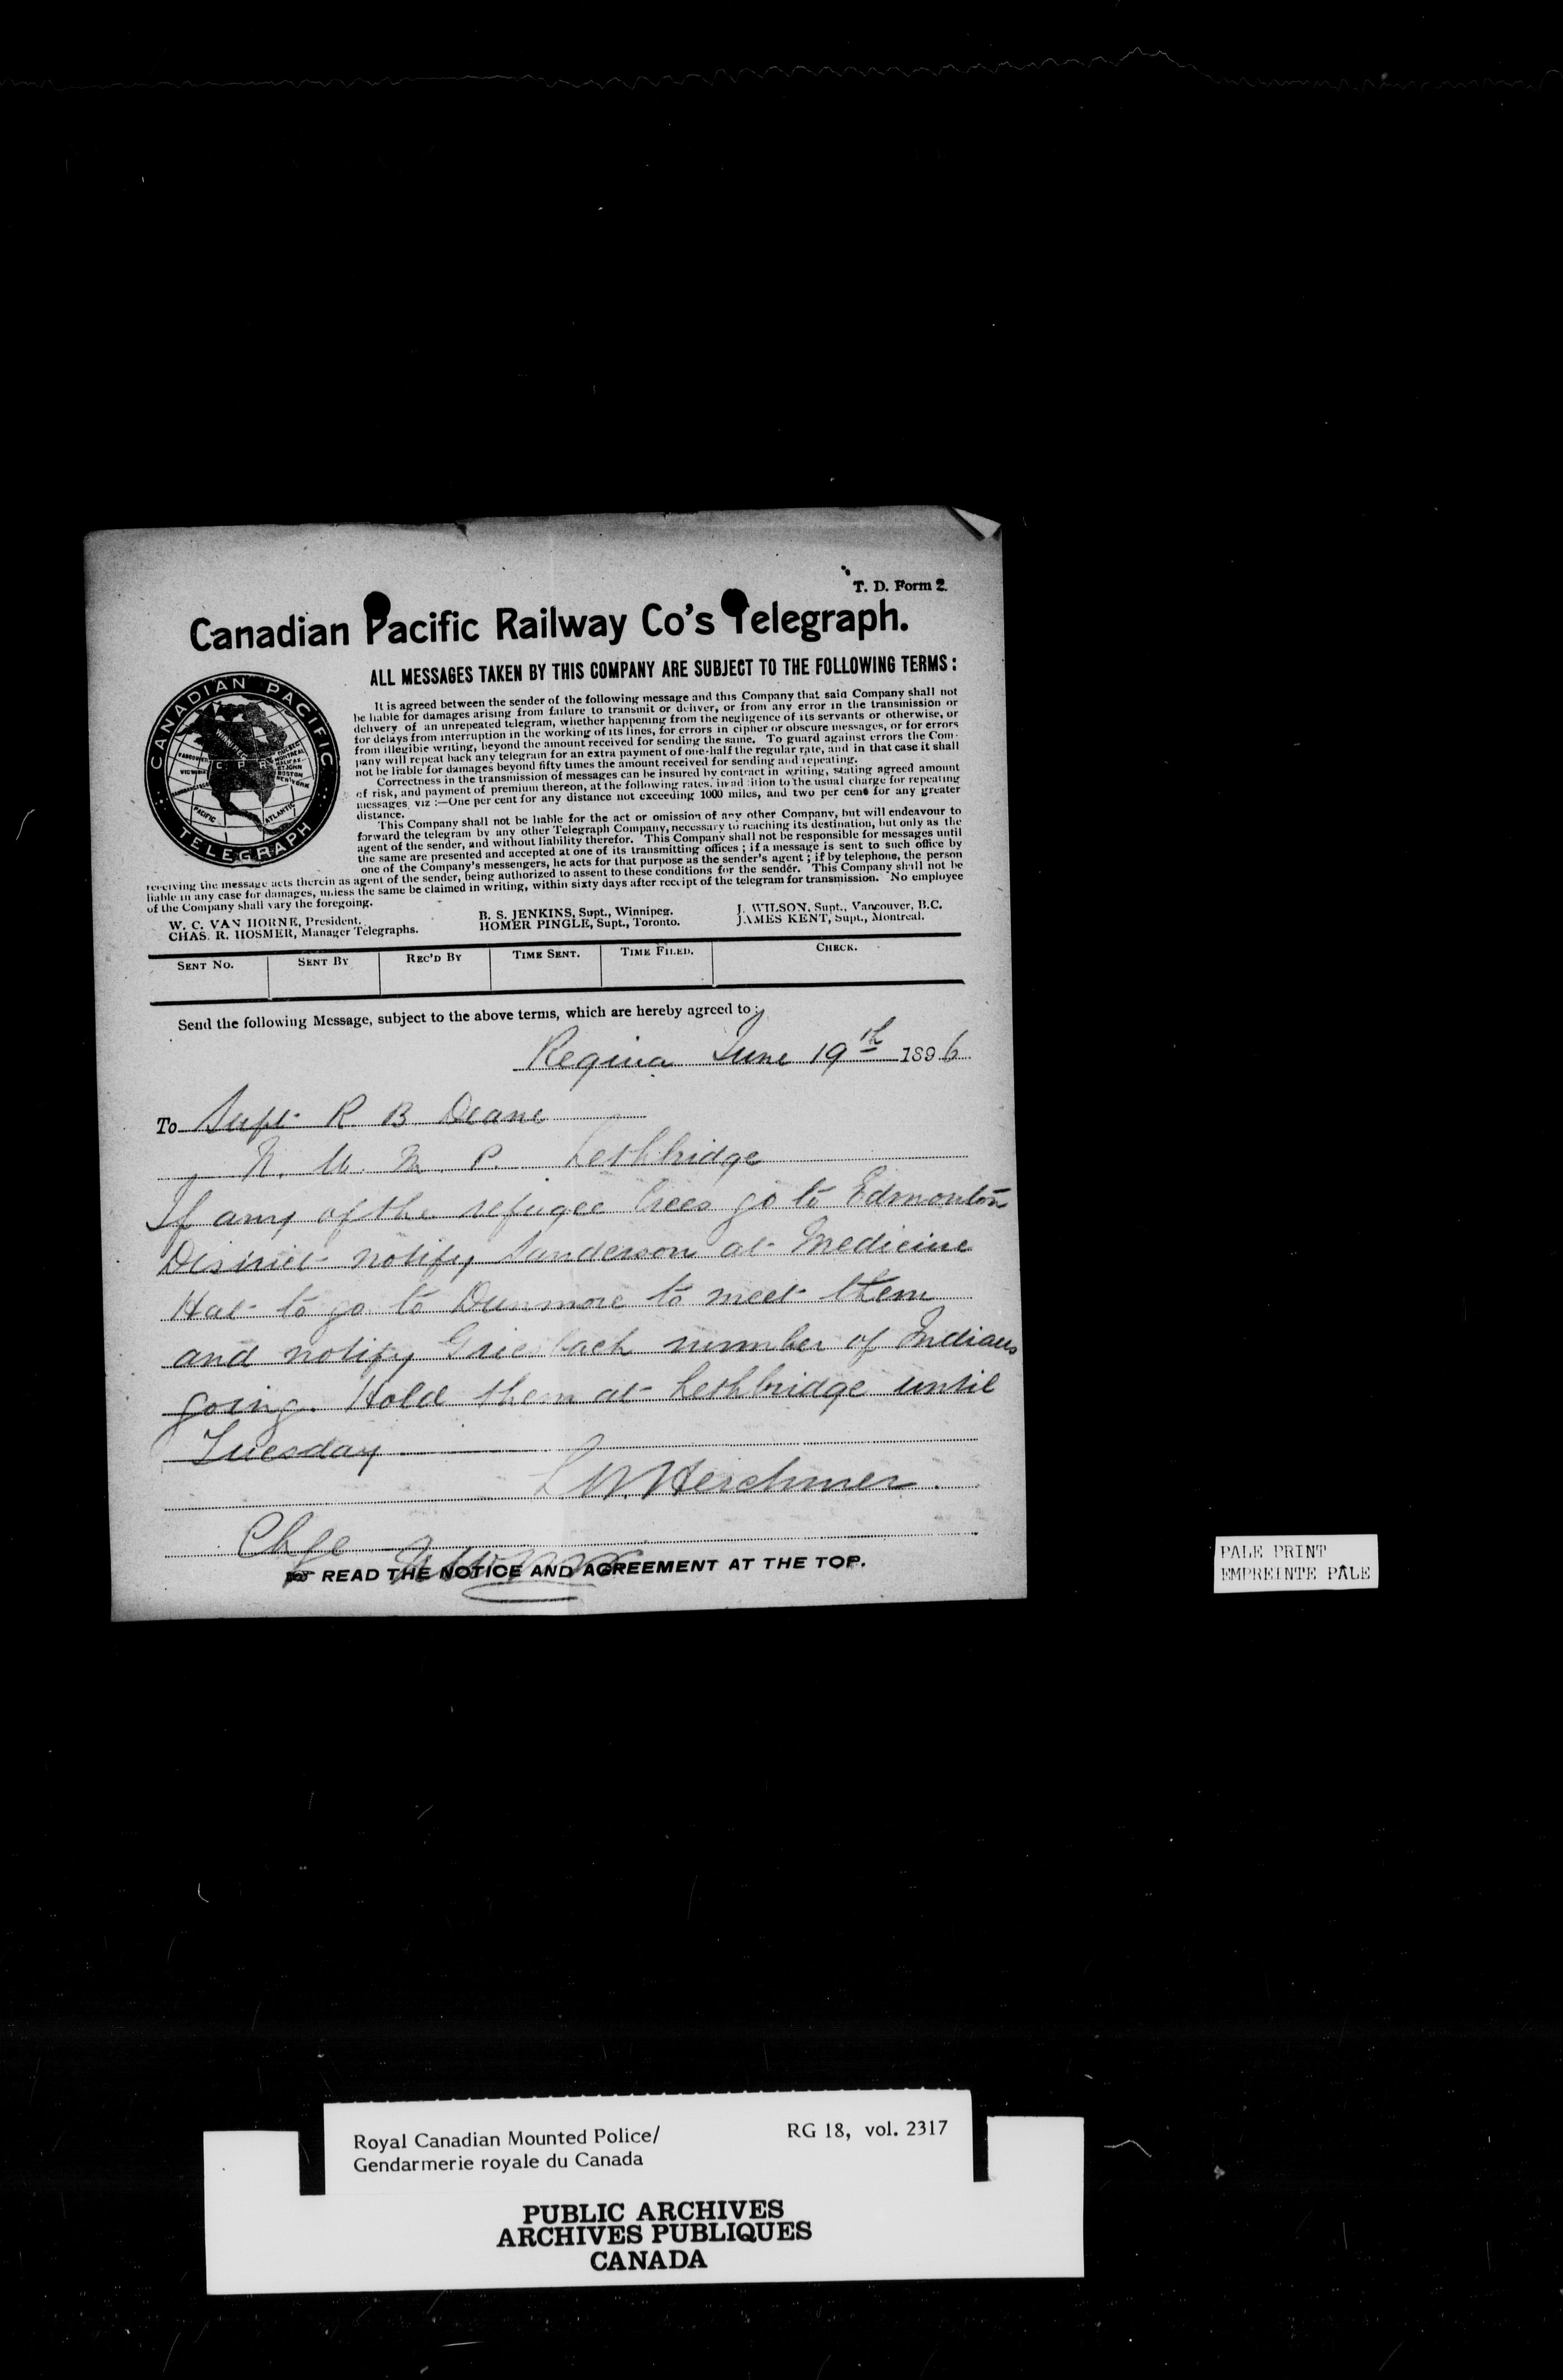 T. D. Form 2.
Canadian Pacific Railway Co's Telegraph.
ALL MESSAGES TAKEN BY THIS COMPANY ARE SUBJECT TO THE FOLLOWING TERMS:
CANADIAN PACIFIC
TELEGRAPH
C. P. R.
PACIFIC
ATLANTIC
It is agreed between the sender of the following message and this Company that said Company shall not
be liable for damages arising from failure to transmit or deliver, or from any error in the transmission or
delivery of an unrepeated telegram, whether happening from the negligence of its servants or otherwise, or
for delays from interruption in the working of its lines, for errors in cipher or obscure messages, or for errors
from illegible writing, beyond the amount received for sending the same. To guard against errors the Com-
pany will repeat back any telegram for an extra payment of one-half the regular rate, and in that case it shall
not be liable for damages beyond fifty times the amount received for sending and repeating.
Correctness in the transmission of messages can be insured by contract in writing, stating agreed amount
of risk, and payment of premium thereon, at the following rates, in addition to the usual charge for repeating
messages, viz :—One per cent for any distance not exceeding 1000 miles, and two per cent for any greater
distance.
This Company shall not be liable for the act or omission of any other Company, but will endeavour to
forward the telegram by any other Telegraph Company, necessary to reaching its destination, but only as the
agent of the sender, and without liability therefor. This Company shall not be responsible for messages until
the same are presented and accepted at one of its transmitting offices ; if a message is sent to such office by
one of the Company's messengers, he acts for that purpose as the sender's agent ; if by telephone, the person
receiving the message acts therein as agent of the sender, being authorized to assent to these conditions for the sender. This Company shall not be
liable in any case for damages, unless the same be claimed in writing, within sixty days after receipt of the telegram for transmission. No employee
of the Company shall vary the foregoing.
W. C. VAN HORNE, President. B. S. JENKINS, Supt., Winnipeg. J. WILSON, Supt., Vancouver, B.C.
CHAS. R. HOSMER, Manager Telegraphs. HOMER PINGLE, Supt., Toronto. JAMES KENT, Supt., Montreal.
SENT NO. SENT BY REC'D BY TIME SENT. TIME FILED. CHECK.
Send the following Message, subject to the above terms, which are hereby agreed to :
Regina June 19th 1896
To Supt R. B. Deane
N. W. M. P. Lethbridge
If any of the refugee Crees go to Edmonton
District notify Sanderson at Medicine
Hat to go to Dunmore to meet them
and notify Griesbach number of Indians
going. Hold them at Lethbridge until
Tuesday
L W Herchmer.
Chge
READ THE NOTICE AND AGREEMENT AT THE TOP.
PALE PRINT
EMPREINTE PÂLE
Royal Canadian Mounted Police/ RG 18, vol. 2317
Gendarmerie royale du Canada
PUBLIC ARCHIVES
ARCHIVES PUBLIQUES
CANADA